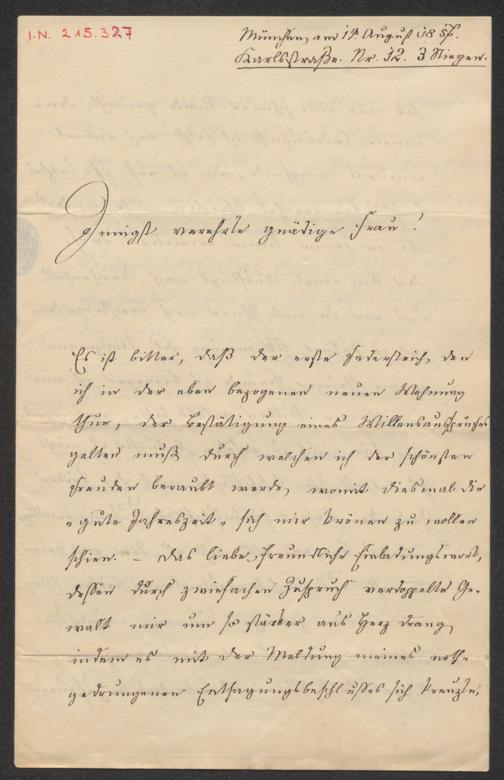 I.N. 215.327
München, am 14 August 1857.
Karlsstraße. Nr. 32. 3 Stiegen.
Innigst verehrte gnädige Frau!
Es ist bitter, daß der erste Federstrich, den
ich in der eben bezogenen neuen Wohnung
thue, der Bestätigung eines Willensausspruches
gelten muß durch welchen ich der schönsten
Freuden beraubt werde, womit diesmal die
"gute Jahreszeit" sich mir krönen zu wollen
schien. – Das liebe, freundliche Einladungswort,
dessen durch zwiefachen Zuspruch verdoppelte Ge-
walt mir um so stärker ans Herz drang,
indem es mit der Meldung meines noth-
gedrungenen Entsagungsbeschlusses sich kreuzte,